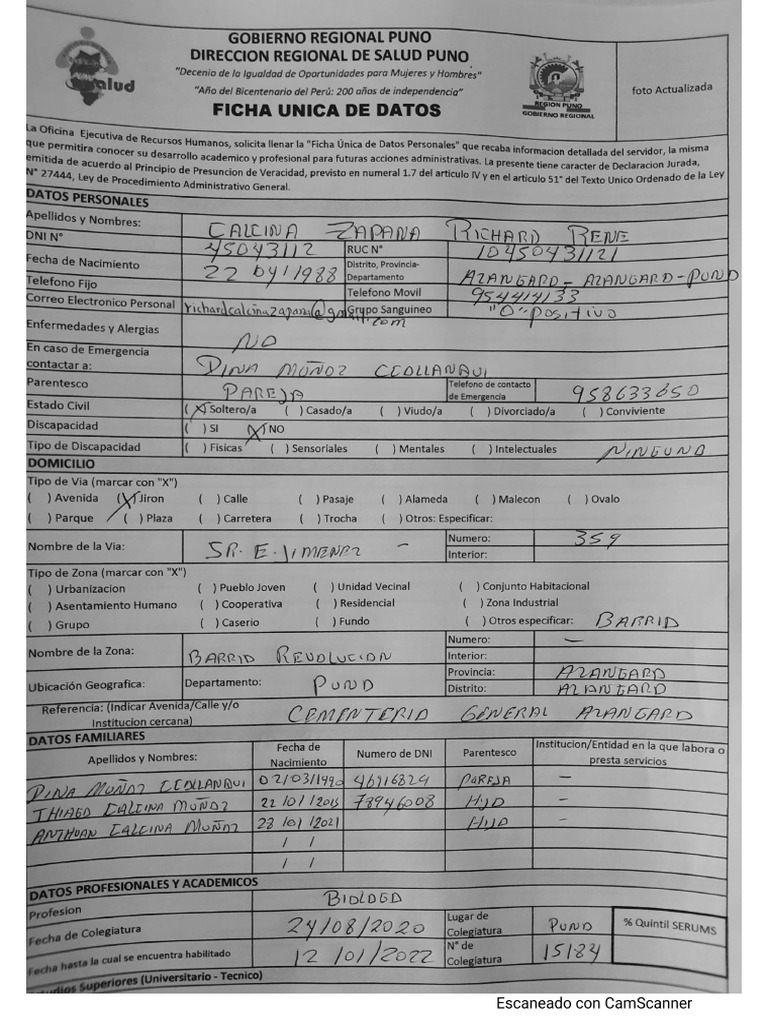 GOBIERNO REGIONAL PUNO
DIRECCION REGIONAL DE SALUD PUNO
"Decenio de la Igualdad de Oportunidades para Mujeres y Hombres"
"Año del Bicentenario del Perú: 200 años de independencia"
FICHA UNICA DE DATOS
salud
REGION PUNO
GOBIERNO REGIONAL
foto Actualizada
La Oficina Ejecutiva de Recursos Humanos, solicita llenar la "Ficha Única de Datos Personales" que recaba informacion detallada del servidor, la misma
que permitira conocer su desarrollo academico y profesional para futuras acciones administrativas. La presente tiene caracter de Declaracion Jurada,
emitida de acuerdo al Principio de Presuncion de Veracidad, previsto en numeral 1.7 del articulo IV y en el articulo 51° del Texto Unico Ordenado de la Ley
N° 27444, Ley de Procedimiento Administrativo General.
DATOS PERSONALES
Apellidos y Nombres: CALCINA ZAPANA RICHARD RENE
DNI N° 45043112 RUC N° 10450431121
Fecha de Nacimiento 22 04/1988 Distrito, Provincia-Departamento AZANGARO - AZANGARO - PUNO
Telefono Fijo Telefono Movil 954414133
Correo Electronico Personal richardcalcinazapana@gmail.com Grupo Sanguineo "O" POSITIVO
Enfermedades y Alergias NO
En caso de Emergencia contactar a: DINA MUÑOZ CCOLLANQUI
Parentesco PAREJA Telefono de contacto de Emergencia 958633650
Estado Civil (X) Soltero/a ( ) Casado/a ( ) Viudo/a ( ) Divorciado/a ( ) Conviviente
Discapacidad ( ) SI (X) NO
Tipo de Discapacidad ( ) Fisicas ( ) Sensoriales ( ) Mentales ( ) Intelectuales NINGUNO
DOMICILIO
Tipo de Via (marcar con "X")
( ) Avenida (X) Jiron ( ) Calle ( ) Pasaje ( ) Alameda ( ) Malecon ( ) Ovalo
( ) Parque ( ) Plaza ( ) Carretera ( ) Trocha ( ) Otros: Especificar:
Nombre de la Via: JR. E. JIMENEZ - Numero: 359
Interior:
Tipo de Zona (marcar con "X")
( ) Urbanizacion ( ) Pueblo Joven ( ) Unidad Vecinal ( ) Conjunto Habitacional
( ) Asentamiento Humano ( ) Cooperativa ( ) Residencial ( ) Zona Industrial
( ) Grupo ( ) Caserio ( ) Fundo ( ) Otros especificar: BARRIO
Nombre de la Zona: BARRIO REVOLUCION Numero: -
Interior:
Ubicación Geografica: Departamento: PUNO Provincia: AZANGARO
Distrito: AZANGARO
Referencia: (Indicar Avenida/Calle y/o Institucion cercana) CEMENTERIO GENERAL AZANGARO
DATOS FAMILIARES
Apellidos y Nombres: Fecha de Nacimiento Numero de DNI Parentesco Institucion/Entidad en la que labora o presta servicios
DINA MUÑOZ CCOLLANQUI 02/03/1990 46916829 PAREJA -
THIAGO CALCINA MUÑOZ 22/01/2015 78946008 HIJO -
ANTHUAN CALCINA MUÑOZ 28/01/2021 HIJO -
/ /
/ /
DATOS PROFESIONALES Y ACADEMICOS
Profesion BIOLOGO
Fecha de Colegiatura 24/08/2020 Lugar de Colegiatura PUNO % Quintil SERUMS
Fecha hasta la cual se encuentra habilitado 12/01/2022 N° de Colegiatura 15184
Estudios Superiores (Universitario - Tecnico)
Escaneado con CamScanner